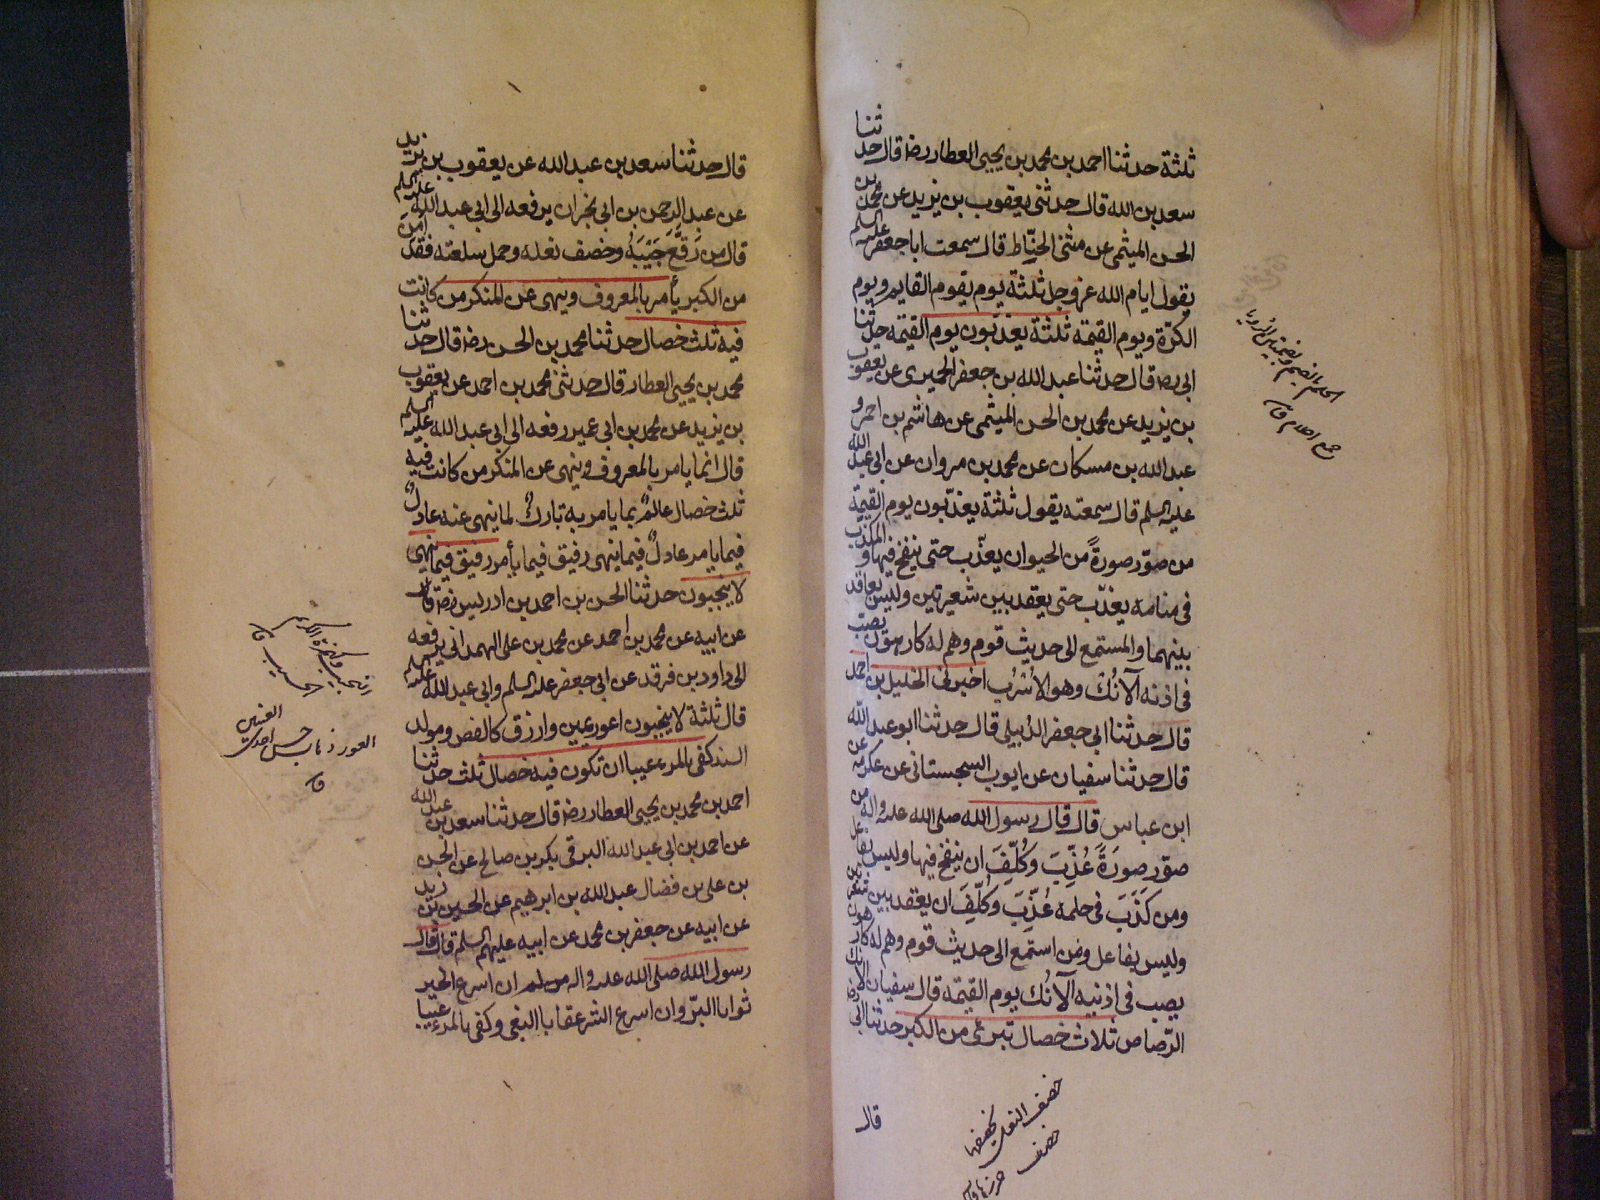 ثلثة حدثنا احمد بن محمد بن يحيى العطار رضه قال حدثنا
سعد بن الله قال حدثنى يعقوب بن يزيد عن محمد بن
الحسن الميثمى عن مثنى الحنّاط قال سمعت ابا جعفر عليه السلم
يقول ايام الله عز وجل ثلثة يوم يقوم القايم ويوم
الكرّة ويوم القيمة ثلثة يعذّبون يوم القيمة حدثنا
ابى رضه قال حدثنا عبد الله بن جعفر الحميرى عن يعقوب
بن يزيد عن محمد بن الحسن الميثمى عن هاشم بن احمر و
عبد الله بن مسكان عن محمد بن مروان عن ابى عبد الله
عليه السلم قال سمعته يقول ثلثة يعذّبون يوم القيمة
من صوّر صورةً من الحيوان يعذّب حتى ينفخ فيها و المكذّب
فى منامه يعذّب حتى يعقد بين شعيرتين وليس بعاقد
بينهما والمستمع الى حديث قوم وهم له كارهون يصب
فى اذنه الآنُك وهو الأسْرُب اخبرنى الخليل بن احمد
قال حدثنا ابى جعفر الدُبيلى قال حدثنا ابو عبد الله
قال حدثنا سفيان عن ايوب السجستانى عن عكرمه عن
ابن عباس قال قال رسول الله صلى الله عليه واله من
صوّر صورَةً عُذِّبَ وَكُلِّفَ ان ينفخ فيها وليس بفاعل
ومن كَذَبَ فى حلمه عُذِّبَ وَكُلِّفَ ان يعقد بين شعيرتين
وليس بفاعل ومن استمع الى حديث قوم وهم له كارهون
يصب فى اذنيه الآنُك يوم القيمة قال سفيان الانك
الرّصاص ثلاث خصال تبرئ من الكبر حدثنا ابى رضه
قال
خصف النعل يخصفها
خصف خرزها
قال حدثنا سعد بن عبد الله عن يعقوب بن يزيد
عن عبد الرحمن بن ابى نجران يرفعه الى ابى عبد الله عليه السلم
قال من رَقَّعَ جَيْبَهُ وخصف نعله وحمل سلعته فقد امن
من الكبر يأمر بالمعروف وينهى عن المنكر من كانت
فيه ثلث خصال حدثنا محمد بن الحسن رضه قال حدثنا
محمد بن يحيى العطار قال حدثنى محمد بن احمد عن يعقوب
بن يزيد عن محمد بن ابى عمير رفعه الى ابى عبد الله عليه السلم
قال انما يامر بالمعروف وينهى عن المنكر من كانت فيه
ثلث خصال عالمٌ بما يامر به تاركٌ لما ينهى عنه عادلٌ
فيما يامر عادلٌ فيما ينهى رفيق فيما يأمر رفيق فيما ينهى
لا ينجبون حدثنا الحسن بن احمد بن ادريس رضه قال
عن ابيه عن محمد بن احمد عن محمد بن على الهمدانى يرفعه
الى داود بن فرقد عن ابى جعفر عليه السلم وابى عبد الله عليه السلم
قال ثلثة لا ينجبون اعور عين وازرق كالفص ومولد
السند كفى بالمرء عيبا ان تكون فيه خصال ثلث حدثنا
احمد بن محمد بن يحيى العطار رضه قال حدثنا سعد بن عبد الله
عن احمد بن ابى عبد الله البرقى بكر بن صالح عن الحسن
بن على بن فضال عبد الله بن ابرهيم عن الحسين بن زيد
عن ابيه عن جعفر بن محمد عن ابيه عليهم السلم قال قال
رسول الله صلى الله عليه واله وسلم ان اسرع الخير
ثوابا البرّ وان اسرع الشر عقابا البغى وكفى بالمرء عيبا